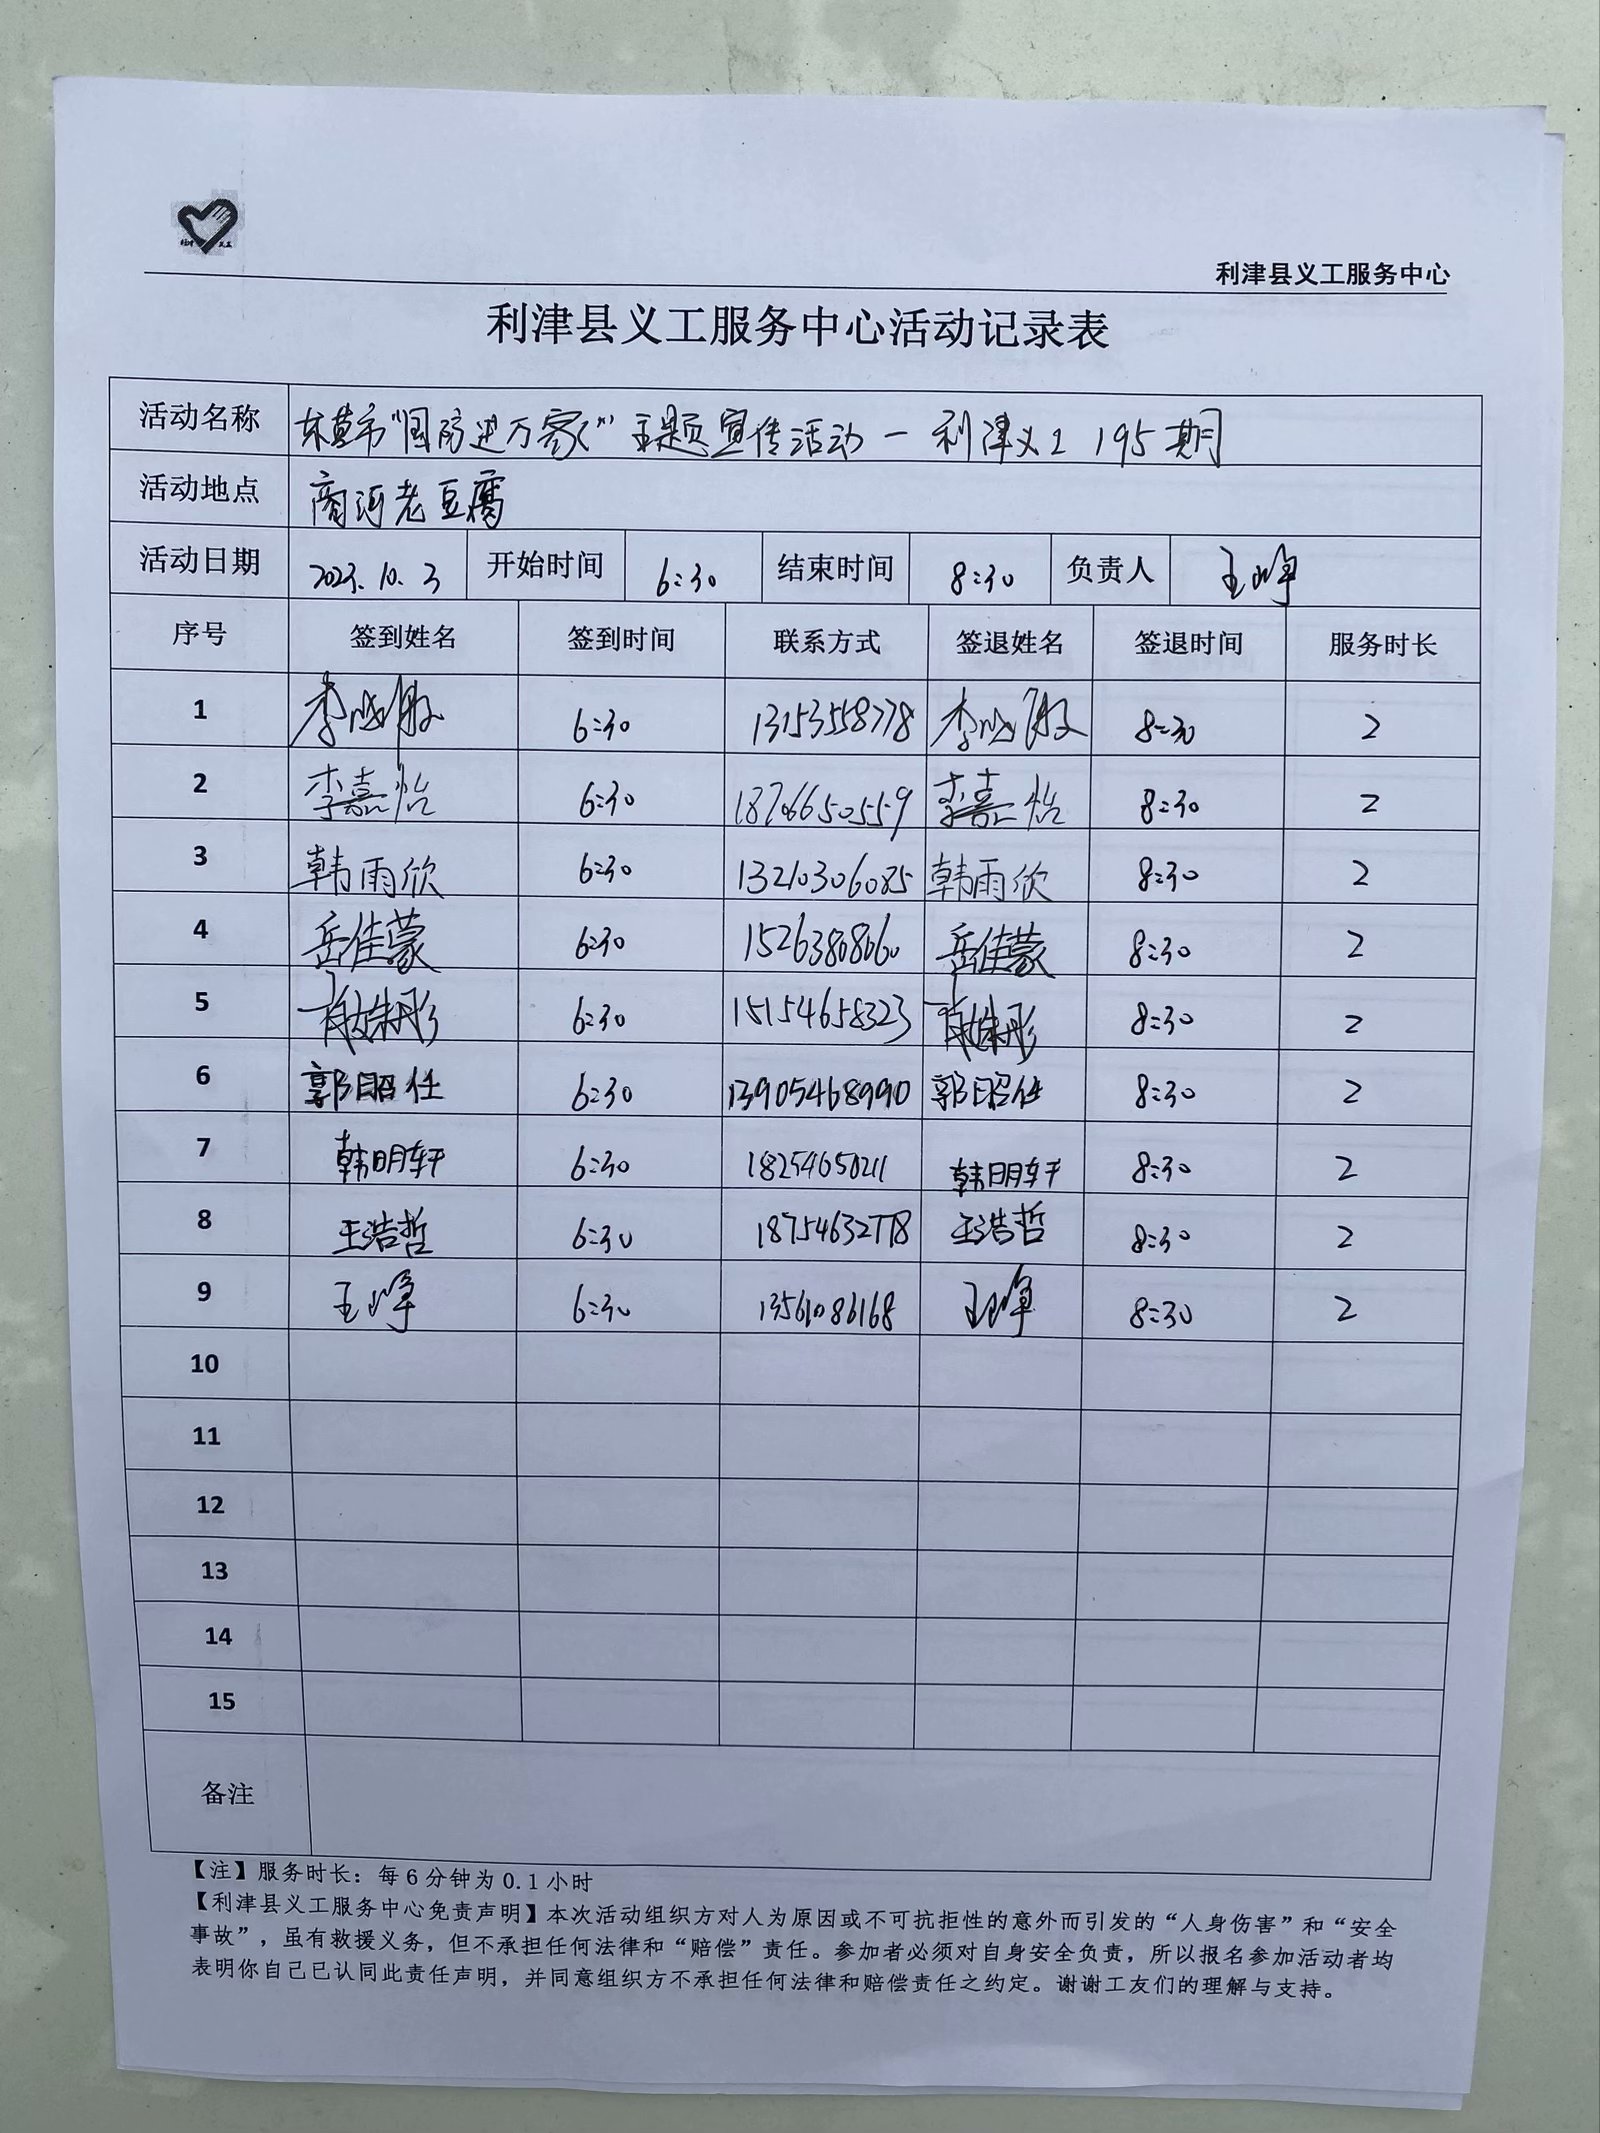 利津县义工服务中心
利津县义工服务中心活动记录表
活动名称 “国防进万家” 主题宣传活动一利津义工 195期
活动地点 商河老豆腐
活动日期 2023.10.3 开始时间 6:30 结束时间 8:30 负责人 王峥
序号 签到姓名 签到时间 联系方式 签退姓名 签退时间 服务时长
1 6:30 13153558778 8:30 2
2 李嘉怡 6:30 18766650559 李嘉怡 8:30 2
3 韩雨欣 6:30 13210306085 韩雨欣 8:30 2
4 岳佳蒙 6:30 15263808060 岳佳蒙 8:30 2
5 6:30 15154658323 8:30 2
6 郭昭任 6:30 13905468990 郭昭任 8:30 2
7 韩明轩 6:30 18254650211 韩明轩 8:30 2
8 王浩哲 6:30 18754632778 王浩哲 8:30 2
9 王峥 6:30 王峥 8:30 2
10
11
12
13
14
15
备注
【注】服务时长：每6分钟为0.1小时
【利津县义工服务中心免责声明】本次活动组织方对人为原因或不可抗拒性的意外而引发的“人身伤害”和“安全
事故”，虽有救援义务，但不承担任何法律和“赔偿”责任。参加者必须对自身安全负责，所以报名参加活动者均
表明你自己已认同此责任声明，并同意组织方不承担任何法律和赔偿责任之约定。谢谢工友们的理解与支持。